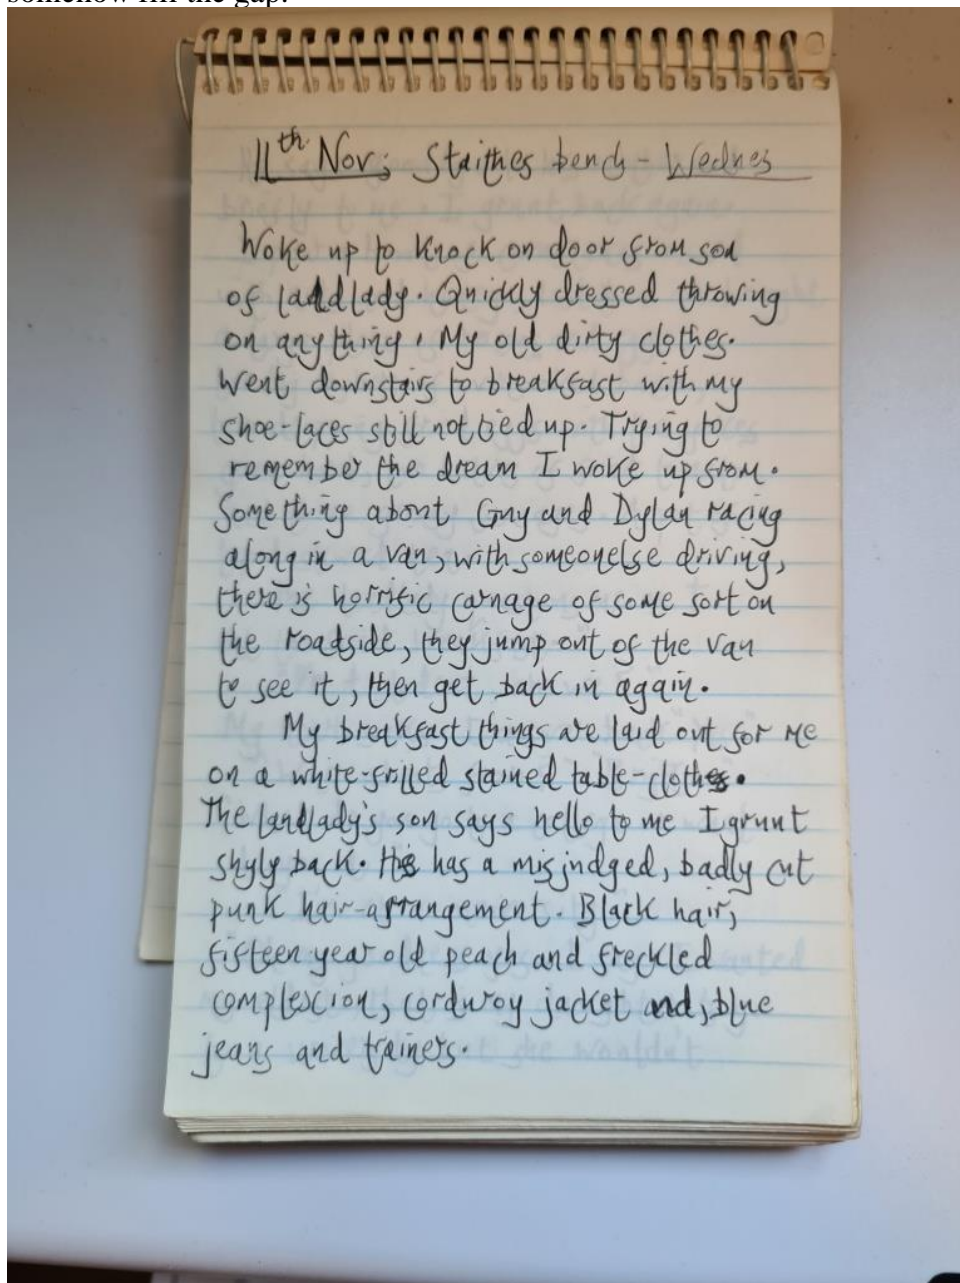 somehow fill the gap.
11th Nov; Staithes bench - Wednes
Woke up to knock on door from son
of landlady. Quickly dressed throwing
on anything. My old dirty clothes.
Went downstairs to breakfast with my
shoe-laces still not tied up. Trying to
remember the dream I woke up from.
Something about Guy and Dylan racing
along in a van, with someonelse driving,
there is horrific carnage of some sort on
the roadside, they jump out of the van
to see it, then get back in again.
My breakfast things are laid out for me
on a white-frilled stained table-cloth.
The landlady's son says hello to me I grunt
shyly back. He has a misjudged, badly cut
punk hair-arrangement. Black hair,
fifteen year old peach and freckled
complexion, corduroy jacket and, blue
jeans and trainers.